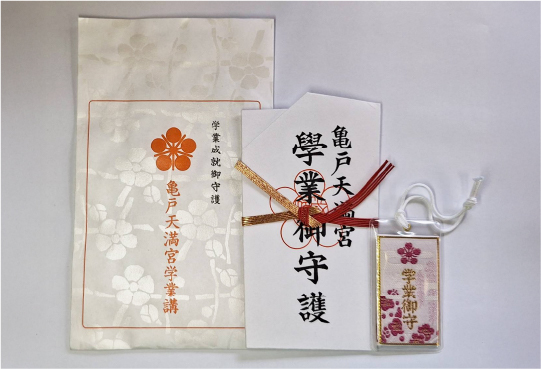 学業成就御守護
亀戸天満宮学業講
亀戸天満宮
學業御守護
学業御守